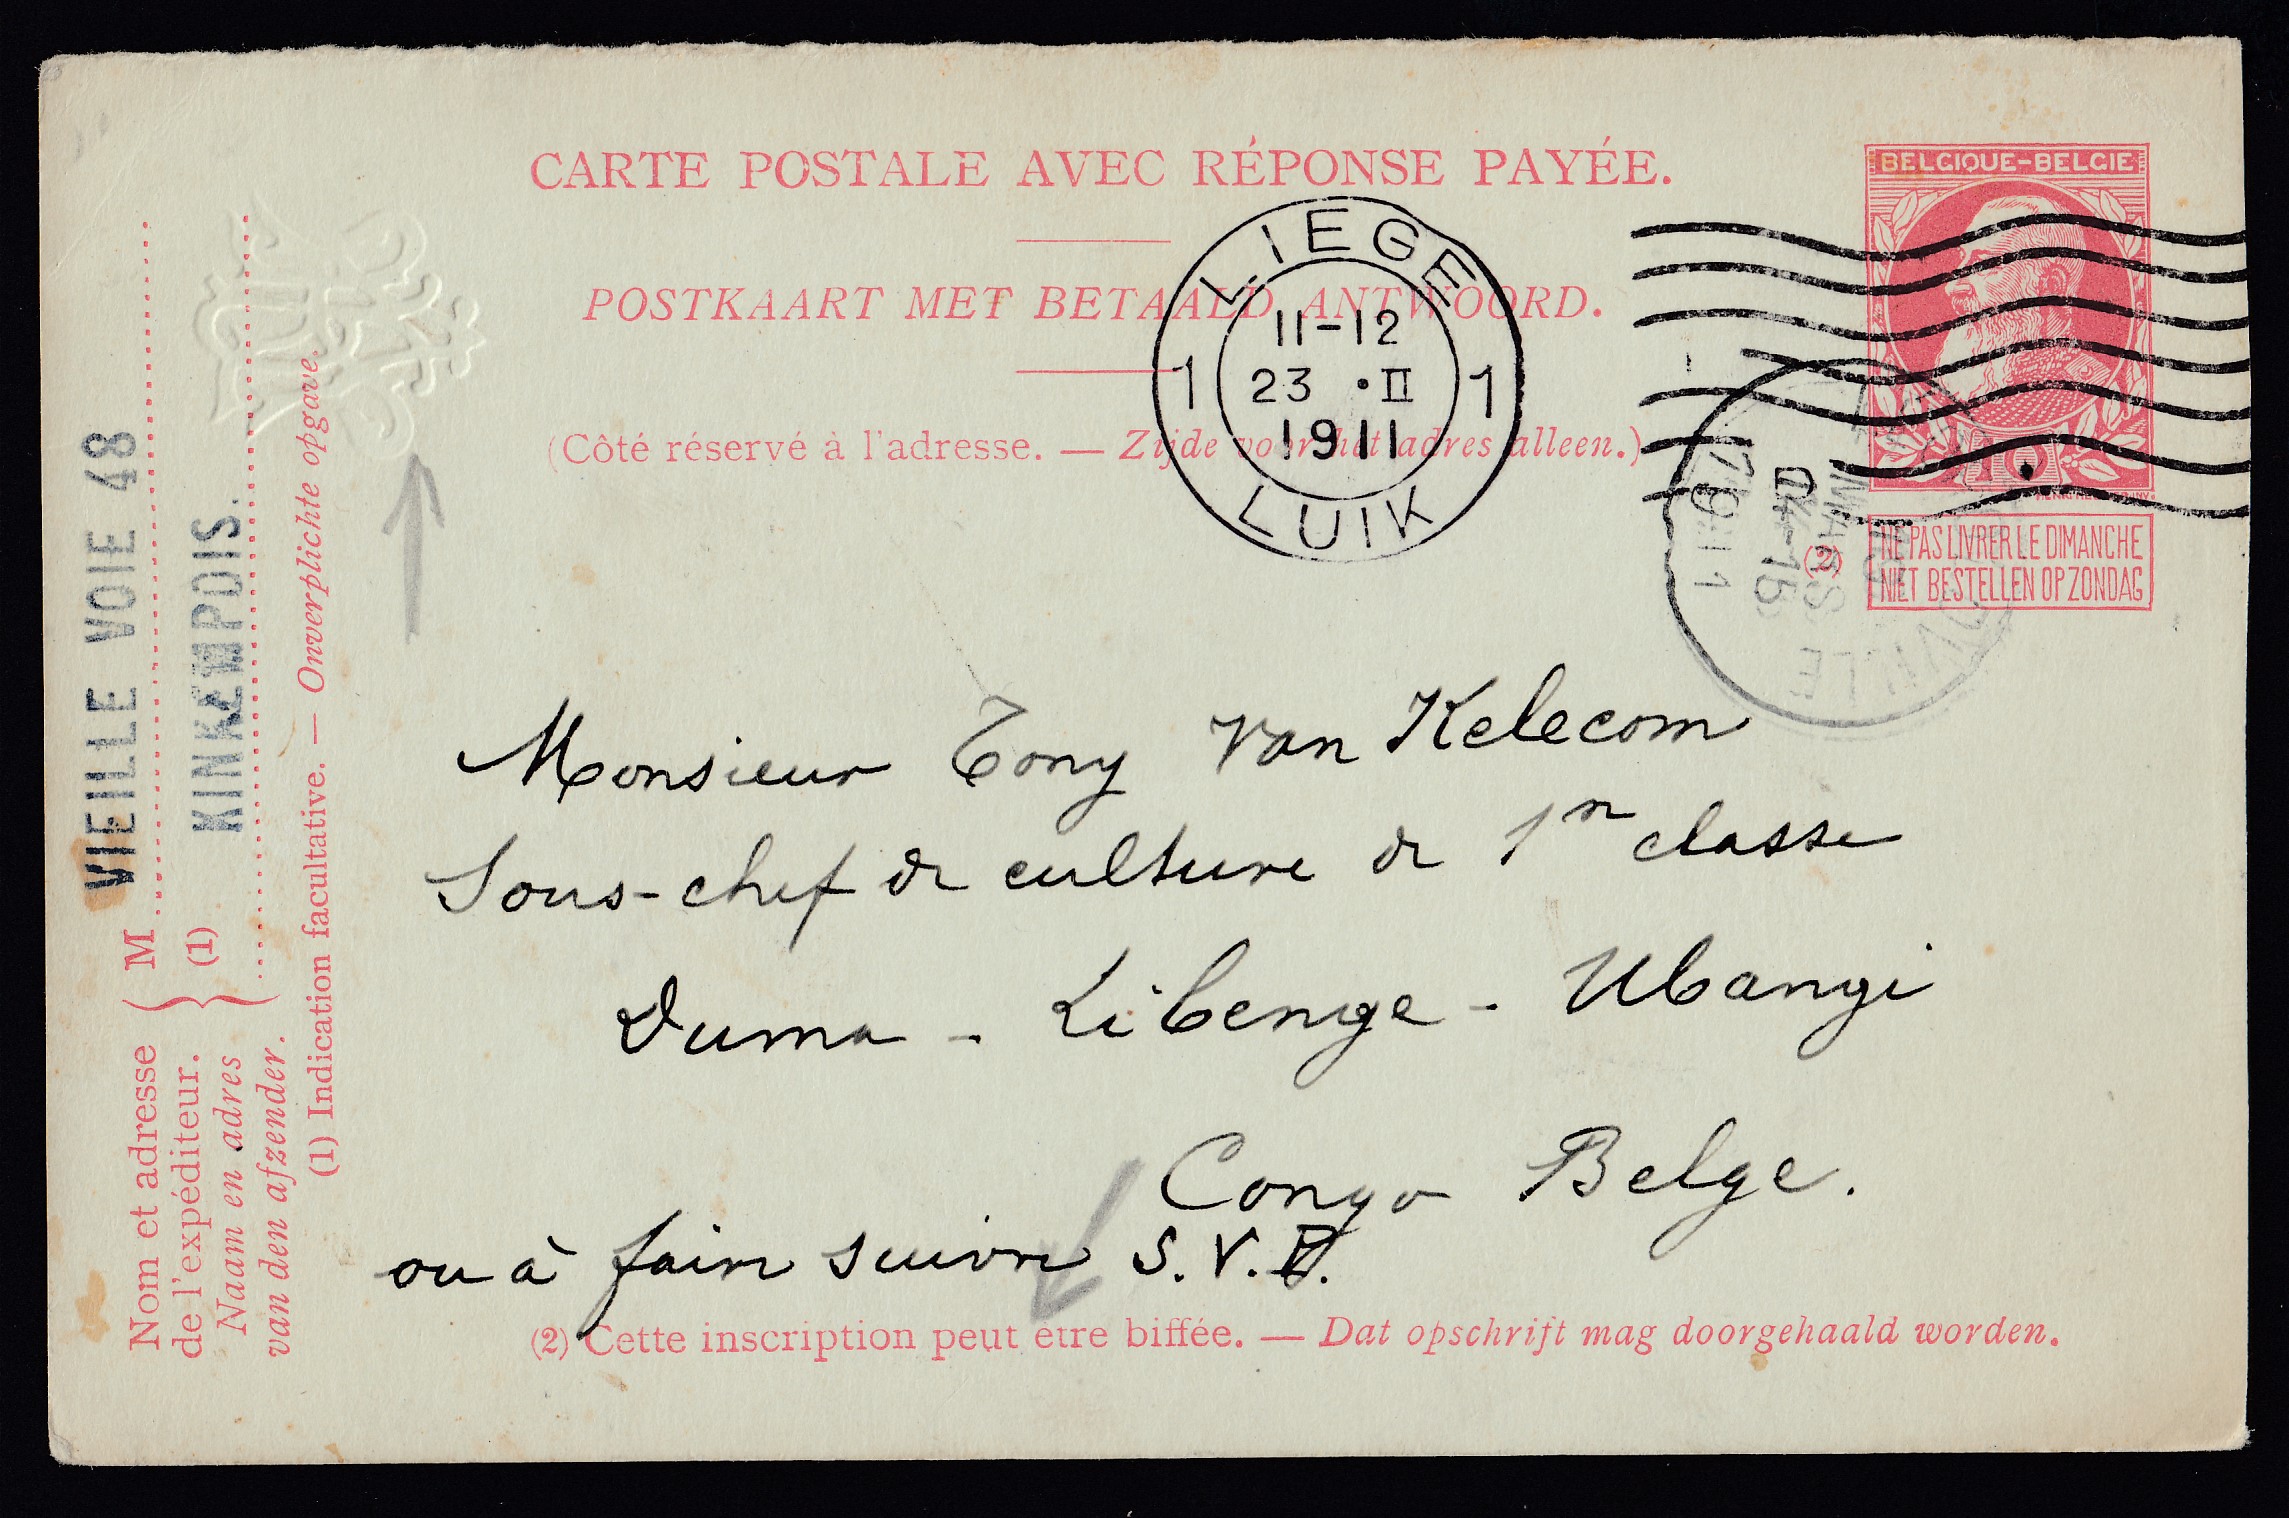 CARTE POSTALE AVEC RÉPONSE PAYÉE.
POSTKAART MET BETAALD ANTWOORD.
(Côté réservé à l'adresse. — Zijde voor het adres alleen.)
BELGIQUE-BELGIE
10
(2) NE PAS LIVRER LE DIMANCHE
NIET BESTELLEN OP ZONDAG
LIEGE
11-12
1 23 •II 1
1911
LUIK
VILLE
Monsieur Tony Van Kelecom
Sous-chef de culture de 1re classe
Duma - Libenge - Ubangi
Congo Belge.
ou à faire suivre S.V.P.
(2) Cette inscription peut etre biffée. — Dat opschrift mag doorgehaald worden.
VIEILLE VOIE 48
KINKEMPOIS.
Nom et adresse
de l'expéditeur.
Naam en adres
van den afzender.
M
(1)
(1) Indication facultative. — Onverplichte opgave.